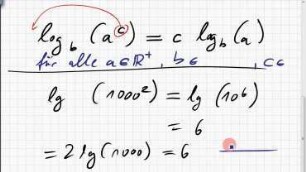 log_b (a^c) = c log_b (a)
für alle a ∈ ℝ⁺, b ∈ , c ∈
lg (1000²) = lg (10⁶)
= 6
= 2 lg (1000) = 6